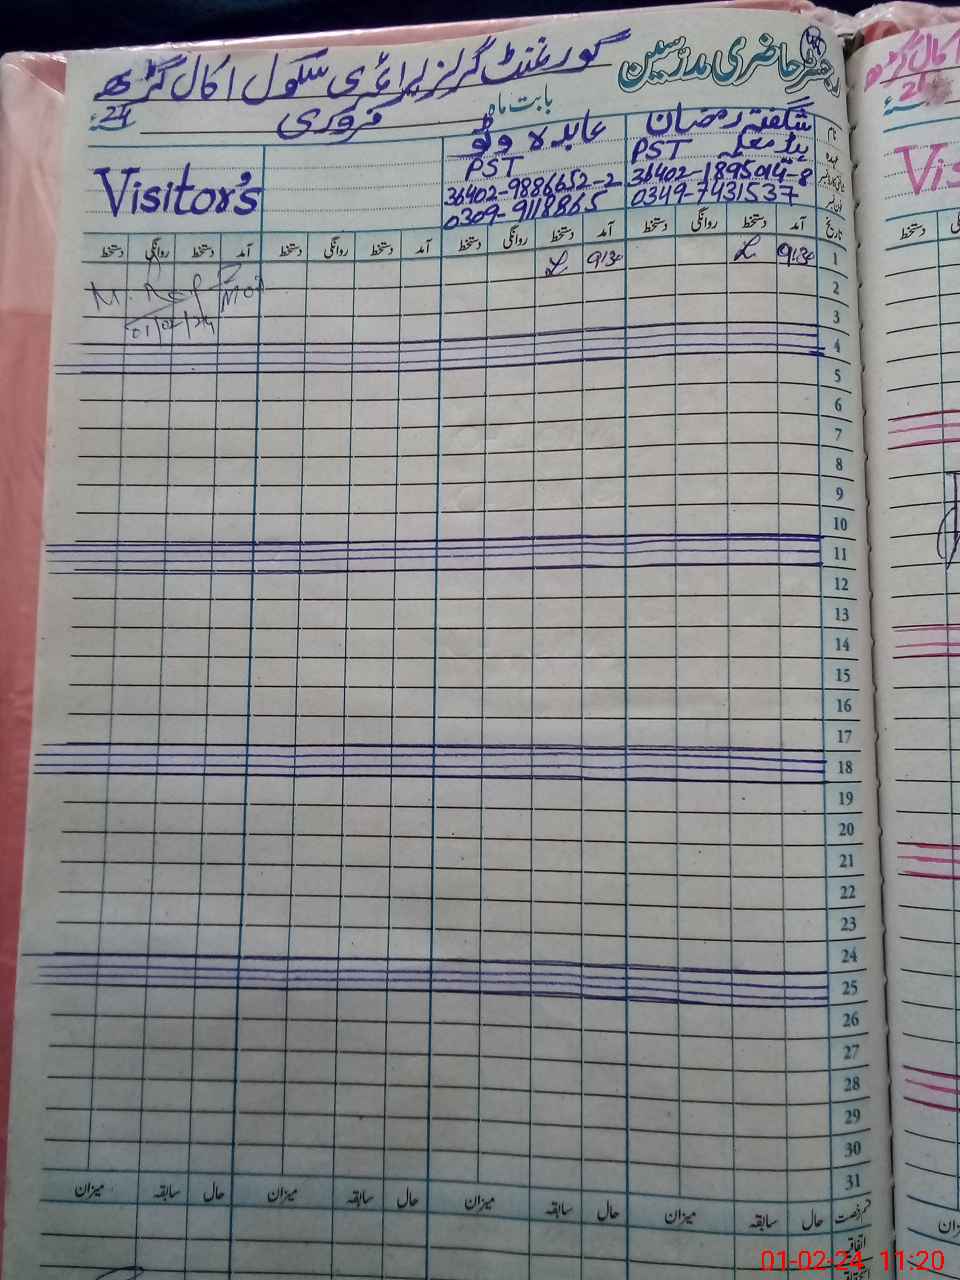 رجسٹر حاضری مدرسین
گورنمنٹ گرلز پرائمری سکول اکال گڑھ
بابت ماہ فروری 24ء
نام
شگفتہ رمضان
ہیڈ معلمہ PST
36402-1895014-8
0349-7431537
عابدہ وٹو
PST
36402-9886652-2
0309-9118865
Visitor's
تاریخ آمد دستخط روانگی دستخط آمد دستخط روانگی دستخط آمد دستخط روانگی دستخط آمد دستخط روانگی دستخط
1 9:30 9:30
2
01/02/24
3
4
5
6
7
8
9
10
11
12
13
14
15
16
17
18
19
20
21
22
23
24
25
26
27
28
29
30
31
حال سابقہ میزان حال سابقہ میزان حال سابقہ میزان حال سابقہ میزان
اتفاقیہ
01-02-24 11:20